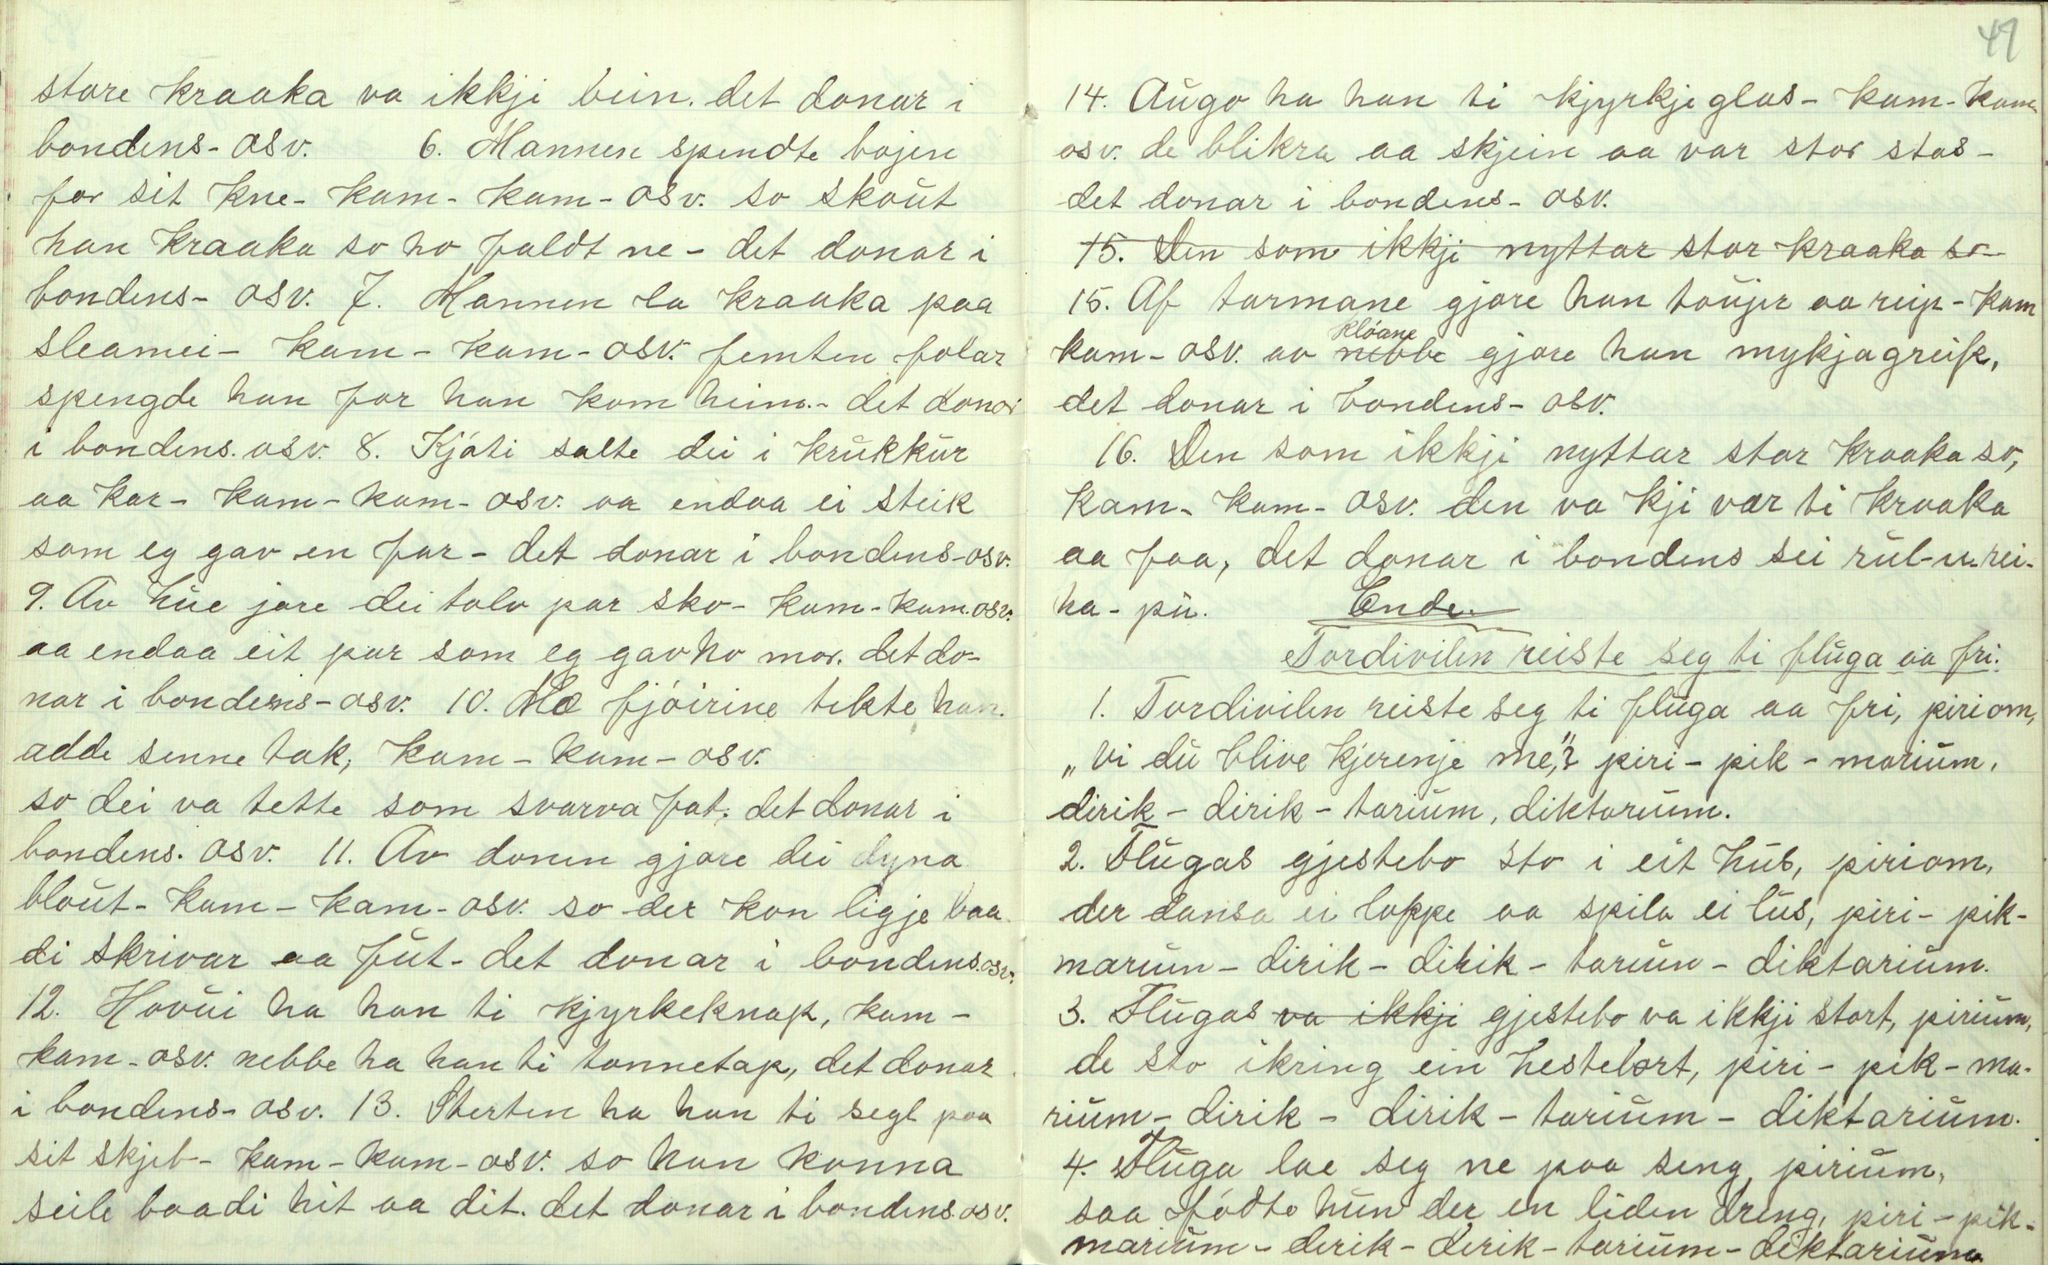 store kraaka va ikkji bein. det donar i
bondens- osv. 6. Mannen spendte bojen
for sit kne- kam- kam- osv. so skout
han kraaka so ho faldt ne- det donar i
bondens- osv. 7. Mannen la kraaka paa
sleamei- kam- kam- osv. femten folar
spengde han for han kom heim.- det donar
i bondens. osv. 8. Kjøti salte dei i krukkur
aa kar- kam- kam- osv. aa endaa ei steik
som eg gav en far- det donar i bondens- osv.
9. Av hue jore dei tolv par sko- kam- kam. osv.
aa endaa eit par som eg gav ho mor. det do-
nar i bondens- osv. 10. Mæ fjøirine tekte han
adde senne tak, kam- kam- osv.
so dei va tette som svarva fat. det donar i
bondens. osv. 11. Av donen gjore dei dyna
blout- kam- kam- osv. so der kon ligje baa
di skrivar aa fut- det donar i bondens. osv.
12. Hovui ha han ti kjyrkeknap, kam-
kam- osv. nebbe ha han ti tonnetap, det donar
i bondens- osv. 13. Sterten ha han ti segl paa
sit skjeb- kam- kam- osv. so han konna
seile baadi hit aa dit. det donar i bondens. osv.
49
14. Augo ha han ti kjyrkjeglas- kam- kam
osv. de blikra aa skjein aa var stor stas-
det donar i bondens- osv.
15. Den som ikkji nyttar stor kraaka so-
15. Af tarmane gjore han toujer aa reip- kam
kløane
kam- osv. av nebbe gjore han mykjagreip,
det donar i bondens- osv.
16. Den som ikkji nyttar stor kraaka so,
kam- kam- osv. den va kji vær ti kraaka
aa faa, det donar i bondens sei rul-u rei-
ha- pu. Ende.
Tordivilen reiste seg ti fluga aa fri.
1. Tordivilen reiste seg ti fluga aa fri, piriom,
„Vi du blive kjerenje me"? piri- pik- marium.
dirik- dirik- tarium, diktarium.
2. Flugas gjestebo sto i eit hus, piriom,
der dansa ei loppe aa spila ei lus, piri- pik-
marium- dirik- dirik- tarium- diktarium.
3. Flugas va ikkji gjestebo va ikkji stort, pirium,
de sto ikring ein hestelort, piri- pik- ma-
rium- dirik- dirik- tarium- diktarium.
4. Fluga lae seg ne paa seng, pirium,
saa fødte hun der en liden dreng, piri- pik-
marium- dirik- dirik- tarium- diktarium